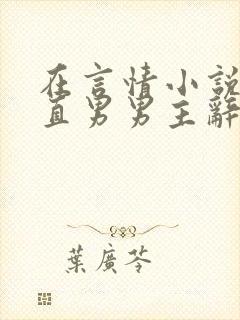 在言情小說
直男男主辭
葉廣芩